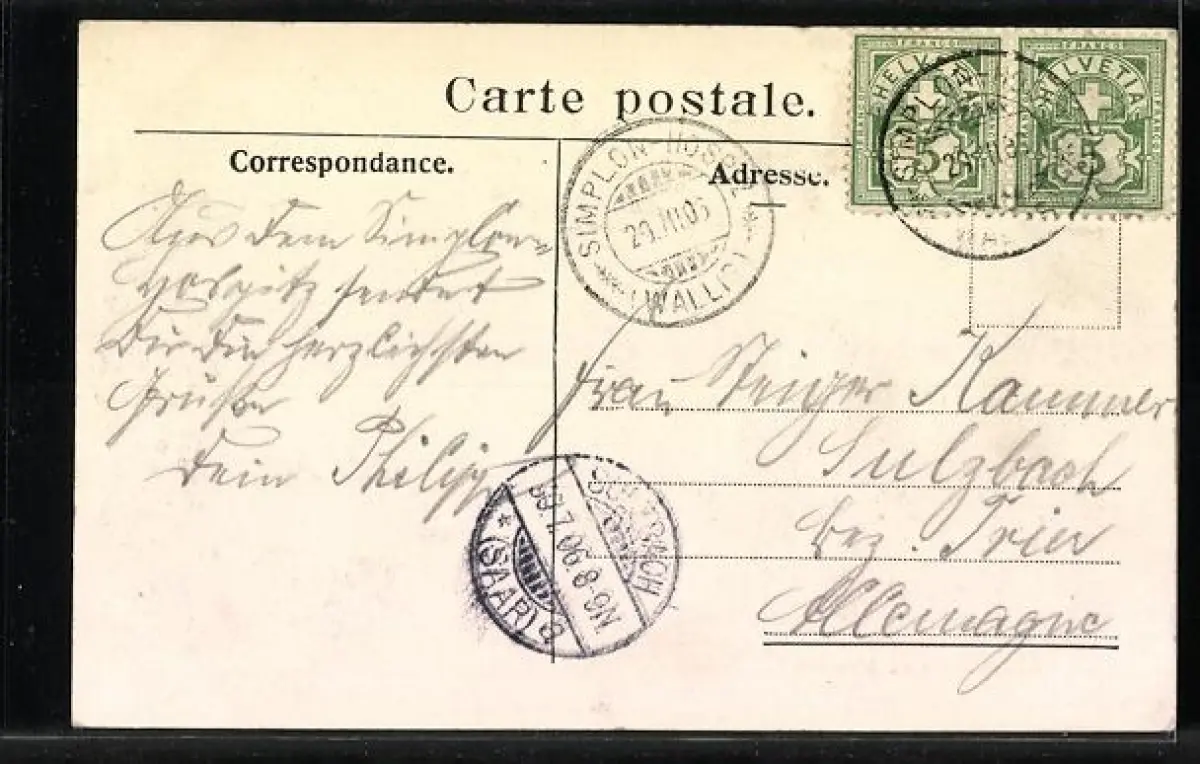 Carte postale.
Correspondance.
Adresse.
FRANCO
HELVETIA
5
FRANCO
HELVETIA
5
SIMPLON-HOSPIZ
(WALLIS)
SIMPLON
29
Aus dem Simplon
Hospitz sendet
Dir die herzlichsten
Grüße
Dein Philipp
Frau Steiger Kammer
Sulzbach
Bez. Trier
Allemagne
SULZBACH
7.06.8-9N.
* (SAAR) a